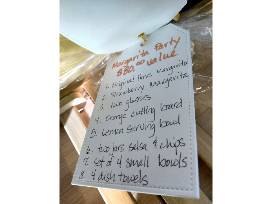 Margarita Party
$80.00 value
1. Original Marg. Margarita
2. Strawberry Margarita
3. two glasses
4. Orange cutting board
5. Lemon serving bowl
6. two jars salsa & chips
7. set of 4 small bowls
8. 4 dish towels